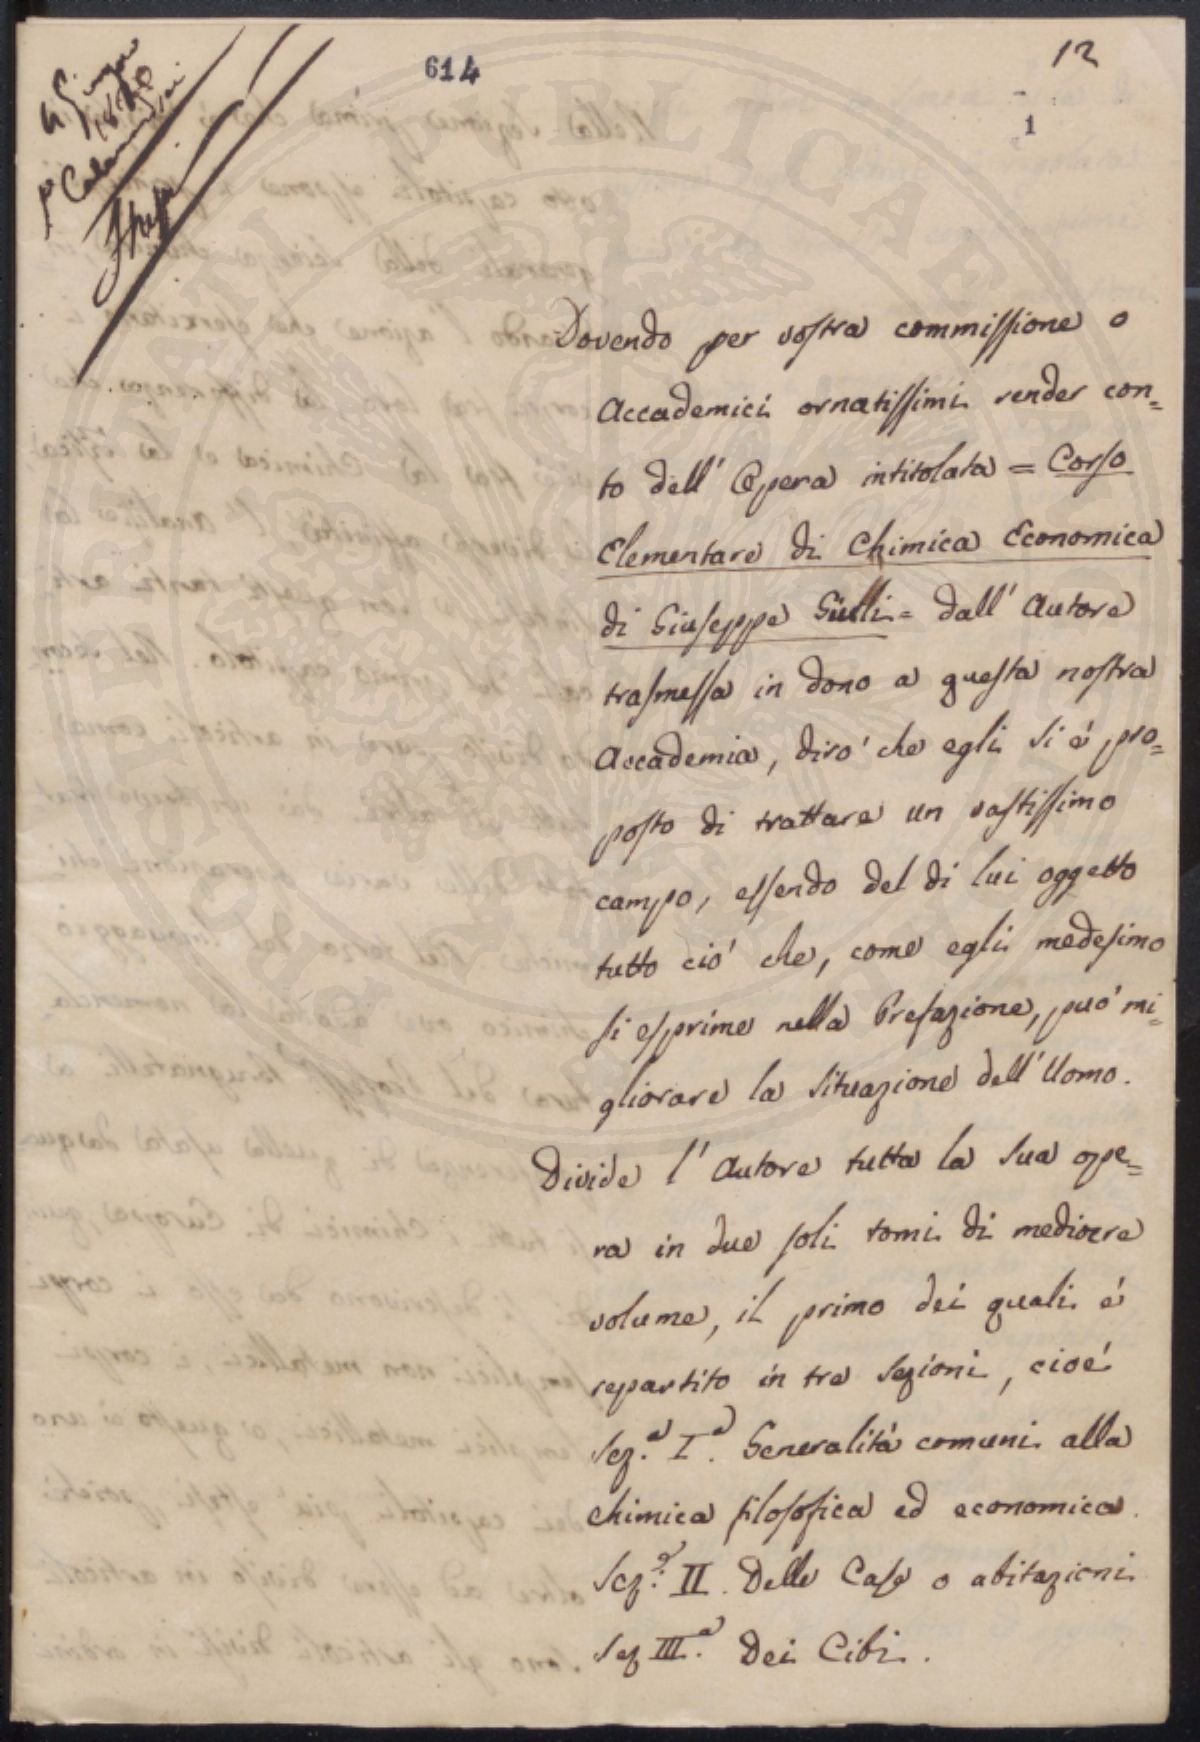 614
12
1
4 Giugno
18
Dovendo per vostra commissione o
Accademici ornatissimi render con=
to dell' Opera intitolata = Corso
Elementare di Chimica Economica
di Giuseppe Giulli = dall' Autore
trasmessa in dono a questa nostra
Accademia, dirò che egli si è pro=
posto di trattare un vastissimo
campo, essendo del di lui oggetto
tutto ciò che, come egli medesimo
si esprime nella Prefazione, può mi=
gliorare la situazione dell' Uomo.
Divide l' Autore tutta la sua ope=
ra in due soli tomi di mediocre
volume, il primo dei quali è
repartito in tre sezioni, cioè
Sez.a I.a Generalità comuni alla
chimica filosofica ed economica.
Sez.a II. Delle Case o abitazioni
Sez III.a Dei Cibi.